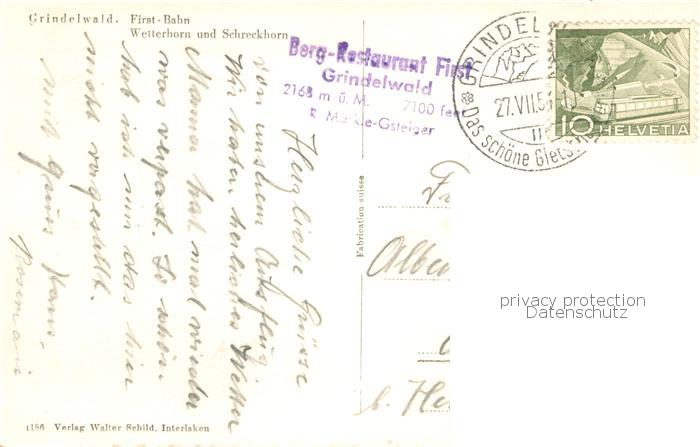 Grindelwald. First-Bahn
Wetterhorn und Schreckhorn
Berg-Restaurant First
Grindelwald
2168 m ü. M. 7100 feet
GRINDELWALD
27.VII.5
11
Das schöne Glets
10 HELVETIA
Herzliche Grüsse
von unserem Ausflug.
Wir haben herrliches Wetter
Mama hat mal wieder
was verpasst. So schön
hab ich mir das hier
nicht vorgestellt.
Hans-
Rosemarie
Fabrication suisse
F
Albe
b. He
privacy protection
Datenschutz
1186 Verlag Walter Schild, Interlaken